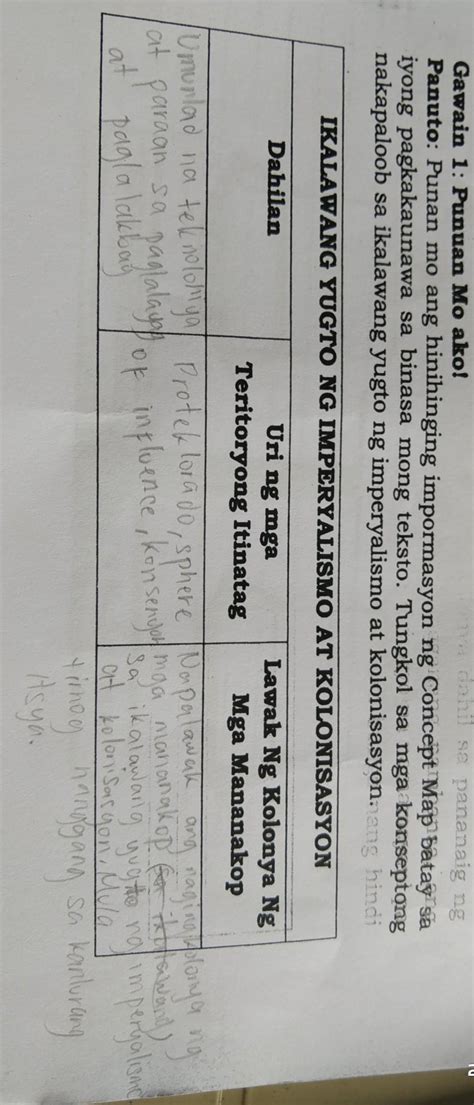 Gawain 1: Punuan Mo ako!
Panuto: Punan mo ang hinihinging impormasyon ng Concept Map batay sa
iyong pagkakaunawa sa binasa mong teksto. Tungkol sa mga konseptong
nakapaloob sa ikalawang yugto ng imperyalismo at kolonisasyon.
IKALAWANG YUGTO NG IMPERYALISMO AT KOLONISASYON
Dahilan
Uri ng mga
Teritoryong Itinatag
Lawak Ng Kolonya Ng
Mga Mananakop
Umunlad na teknolohiya
at paraan sa paglalayag
at paglalakbay
Proteklorado, sphere
of influence,
Napalawak ang naging kolonya ng
mga mananakop
sa ikalawang yugto ng imperyalismo
at kolonisasyon, Mula
timog hanggang sa kanlurang
Asya.